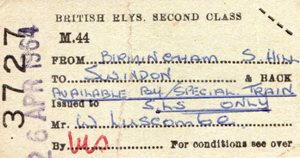 BRITISH RLYS. SECOND CLASS
M.44
FROM BIRMINGHAM S. HILL
TO SWINDON & BACK
AVAILABLE BY SPECIAL TRAIN
Issued to SLS ONLY
Mr. W LUSCOMBE
By For conditions see over
3727
26 APR 1964